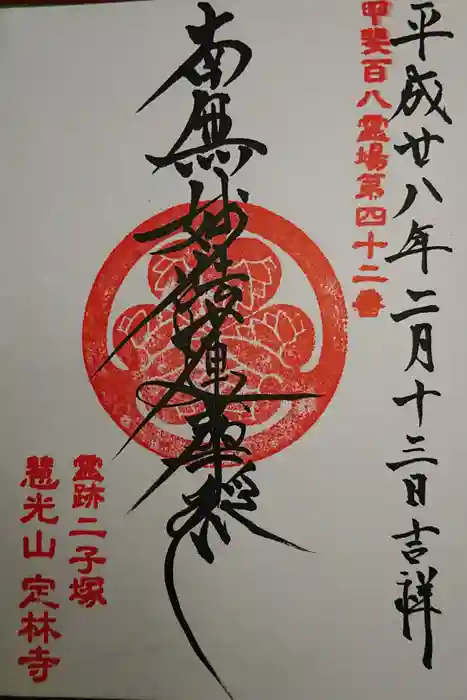 平成廿八年二月十三日吉祥
甲斐百八霊場第四十二番
南無妙法蓮華経
霊跡二子塚
慧光山 定林寺